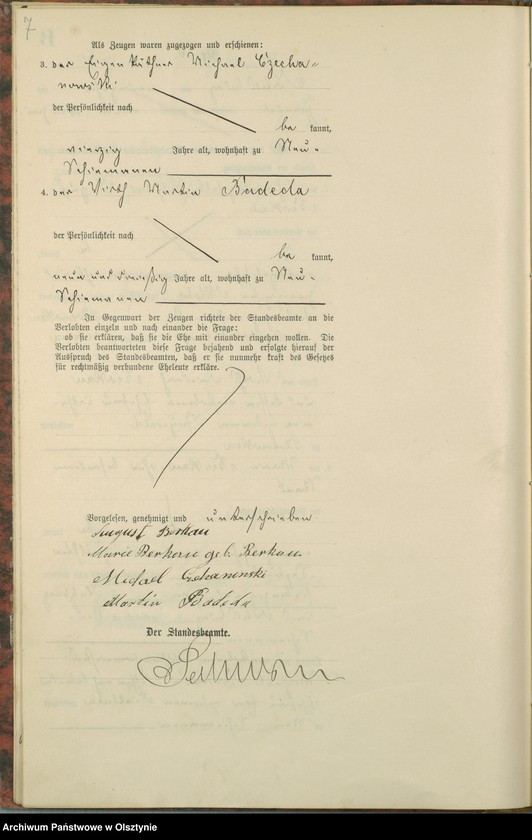 7
Als Zeugen waren zugezogen und erschienen:
3. der Eigenkäthner Michael Czecha-
nowski
der Persönlichkeit nach
be kannt,
vierzig Jahre alt, wohnhaft zu Neu-
Schiemanen
4. der Wirth Martin Badeda
der Persönlichkeit nach
be kannt,
neun und dreißig Jahre alt, wohnhaft zu Neu-
Schiemanen
In Gegenwart der Zeugen richtete der Standesbeamte an die
Verlobten einzeln und nach einander die Frage:
ob sie erklären, daß sie die Ehe mit einander eingehen wollen. Die
Verlobten beantworteten diese Frage bejahend und erfolgte hierauf der
Ausspruch des Standesbeamten, daß er sie nunmehr kraft des Gesetzes
für rechtmäßig verbundene Eheleute erkläre.
Vorgelesen, genehmigt und unterschrieben
August Berkau
Marie Berkau geb. Berkau
Michael
Martin Badeda
Der Standesbeamte.
Archiwum Państwowe w Olsztynie